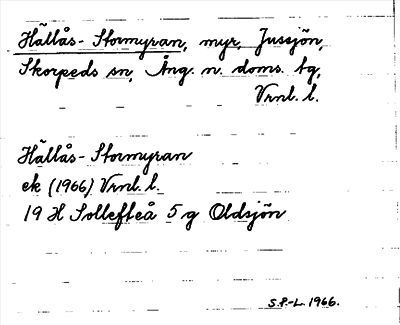 Hällås-Stormyran, myr, Jussjön,
Skorpeds sn, Ång. n. doms. bg,
Vrnl. l.
Hällås-Stormyran
ek (1966) Vrnl. l.
19 H Sollefteå 5 g Oldsjön
S.P.-L. 1966.